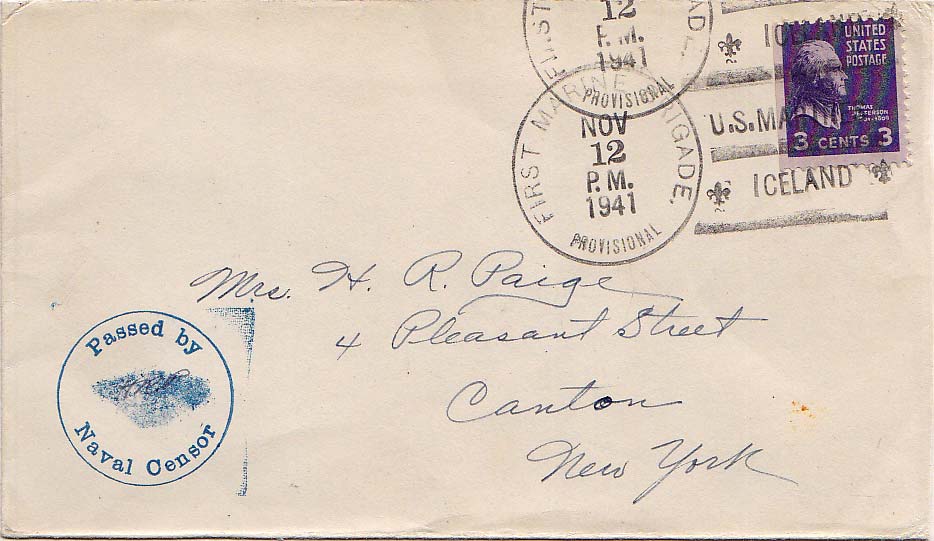 FIRST BRIGADE.
12
P.M.
1941
PROVISIONAL
ICELAND
UNITED
STATES
POSTAGE
THOMAS
JEFFERSON
3 CENTS 3
FIRST MARINE BRIGADE.
NOV
12
P.M.
1941
PROVISIONAL
U.S.MAR
ICELAND
Mrs. H. R. Paige
4 Pleasant Street
Canton
New York
Passed by
HRP
Naval Censor